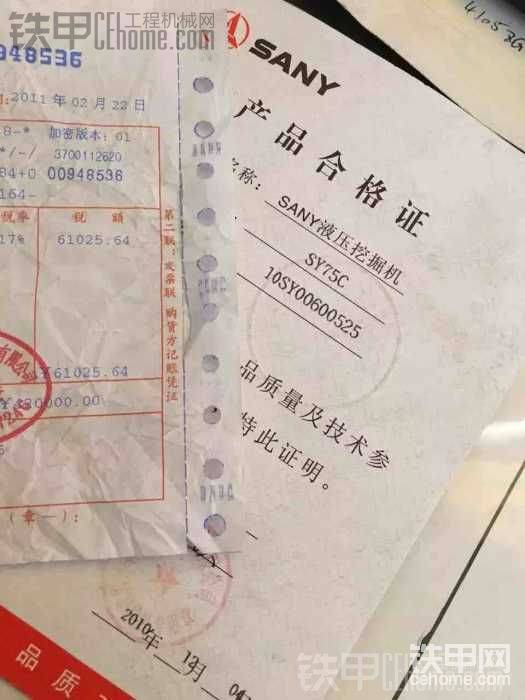 铁甲 工程机械网
CEhome.com
948536
2011 年 02 月 22 日
8-* 加密版本: 01
*/-/ 3700112620
84+0 00948536
164-
税率 税 额
17% 61025.64
¥61025.64
¥420000.00
(章):
第二联:发票联 购货方记账凭证
SANY
产品合格证
名称: SANY液压挖掘机
SY75C
10SY00600525
品质量及技术参
特此证明。
2010年 12月 04
品 质
41053G
铁甲网
cehome.com